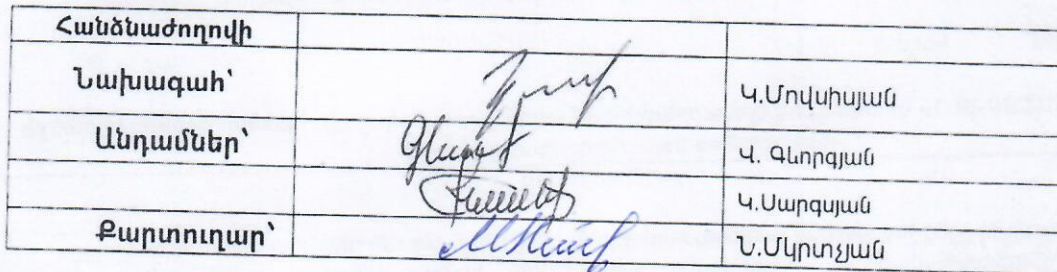 Հանձնաժողովի
Նախագահ՝ Կ.Մովսիսյան
Անդամներ՝ Վ. Գևորգյան
Կ.Սարգսյան
Քարտուղար՝ Ն.Մկրտչյան